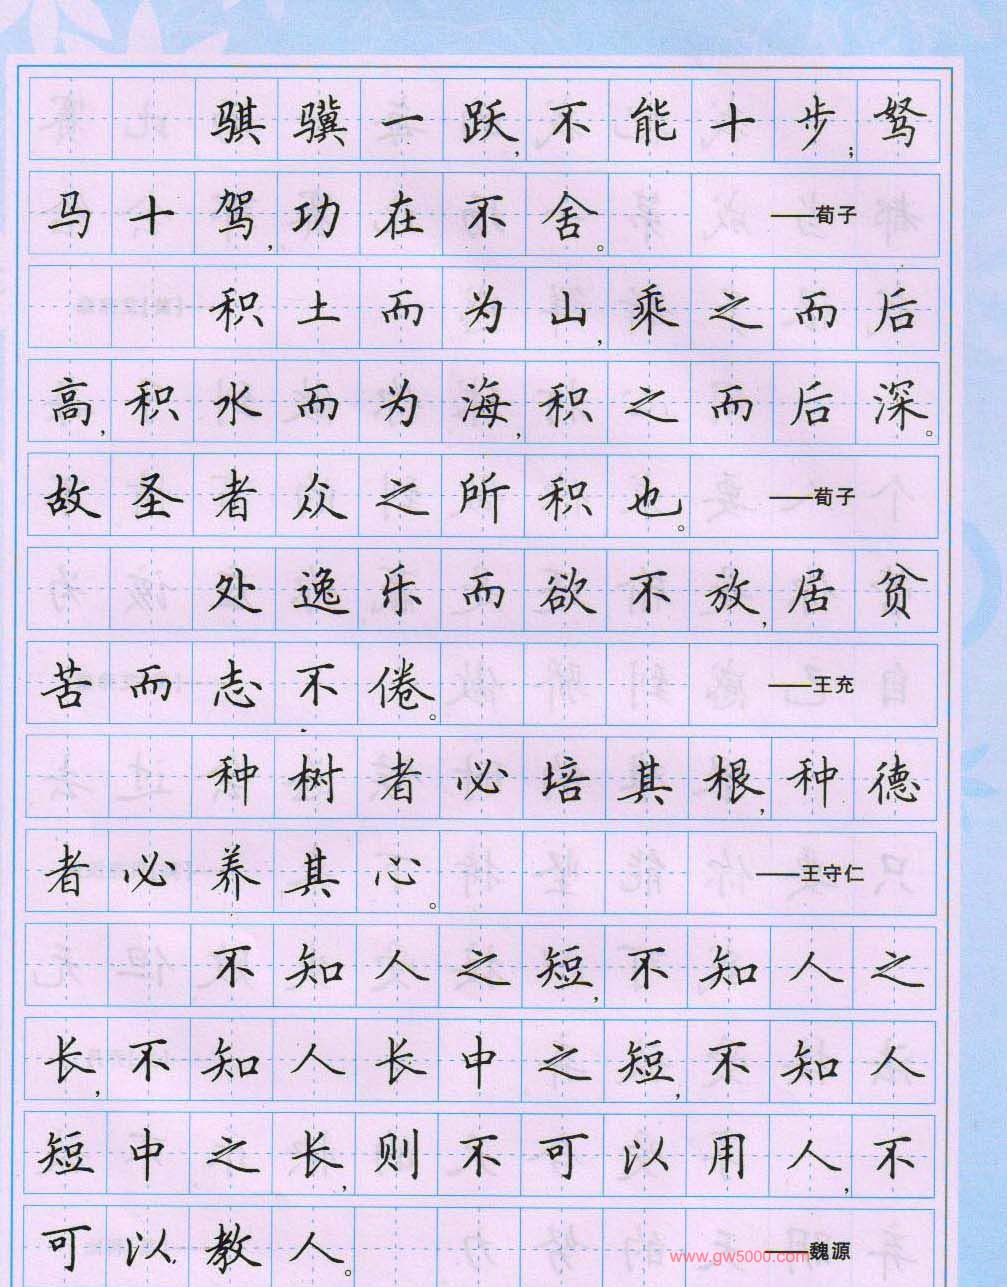 骐骥一跃,不能十步;驽
马十驾,功在不舍。——荀子
积土而为山,乘之而后
高,积水而为海,积之而后深。
故圣者众之所积也。——荀子
处逸乐而欲不放,居贫
苦而志不倦。——王充
种树者必培其根,种德
者必养其心。——王守仁
不知人之短,不知人之
长,不知人长中之短,不知人
短中之长,则不可以用人,不
可以教人。——魏源
www.gw5000.com